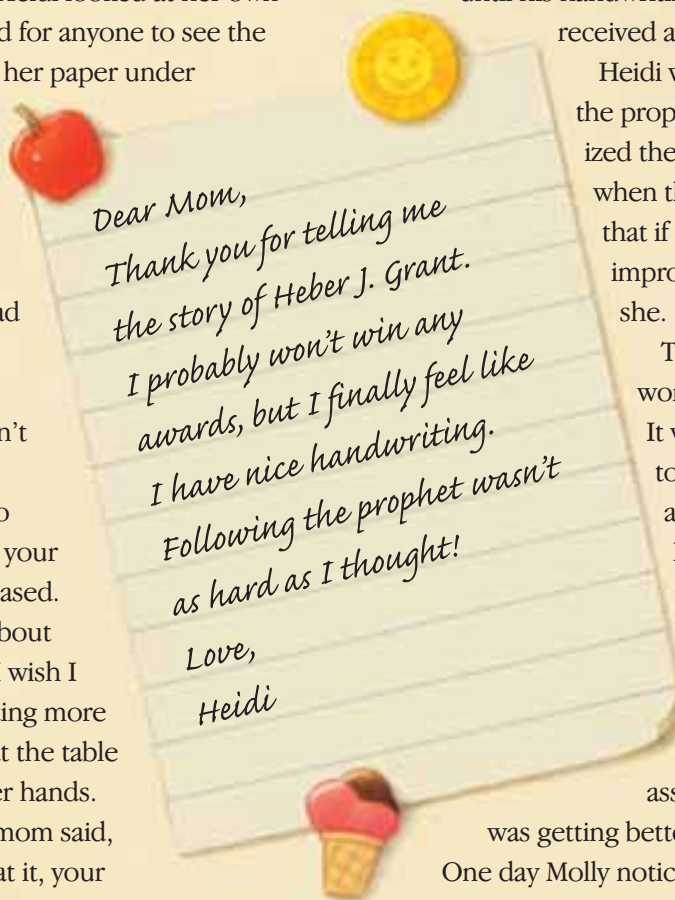 d for anyone to see the
her paper under
ad
n't
o
your
ased.
bout
I wish I
ting more
t the table
er hands.
mom said,
at it, your
Dear Mom,
Thank you for telling me
the story of Heber J. Grant.
I probably won't win any
awards, but I finally feel like
I have nice handwriting.
Following the prophet wasn't
as hard as I thought!
Love,
Heidi
received a
Heidi w
the prop
ized the
when th
that if
impro
she.
T
wor
It w
to
a
ass
was getting bette
One day Molly notic